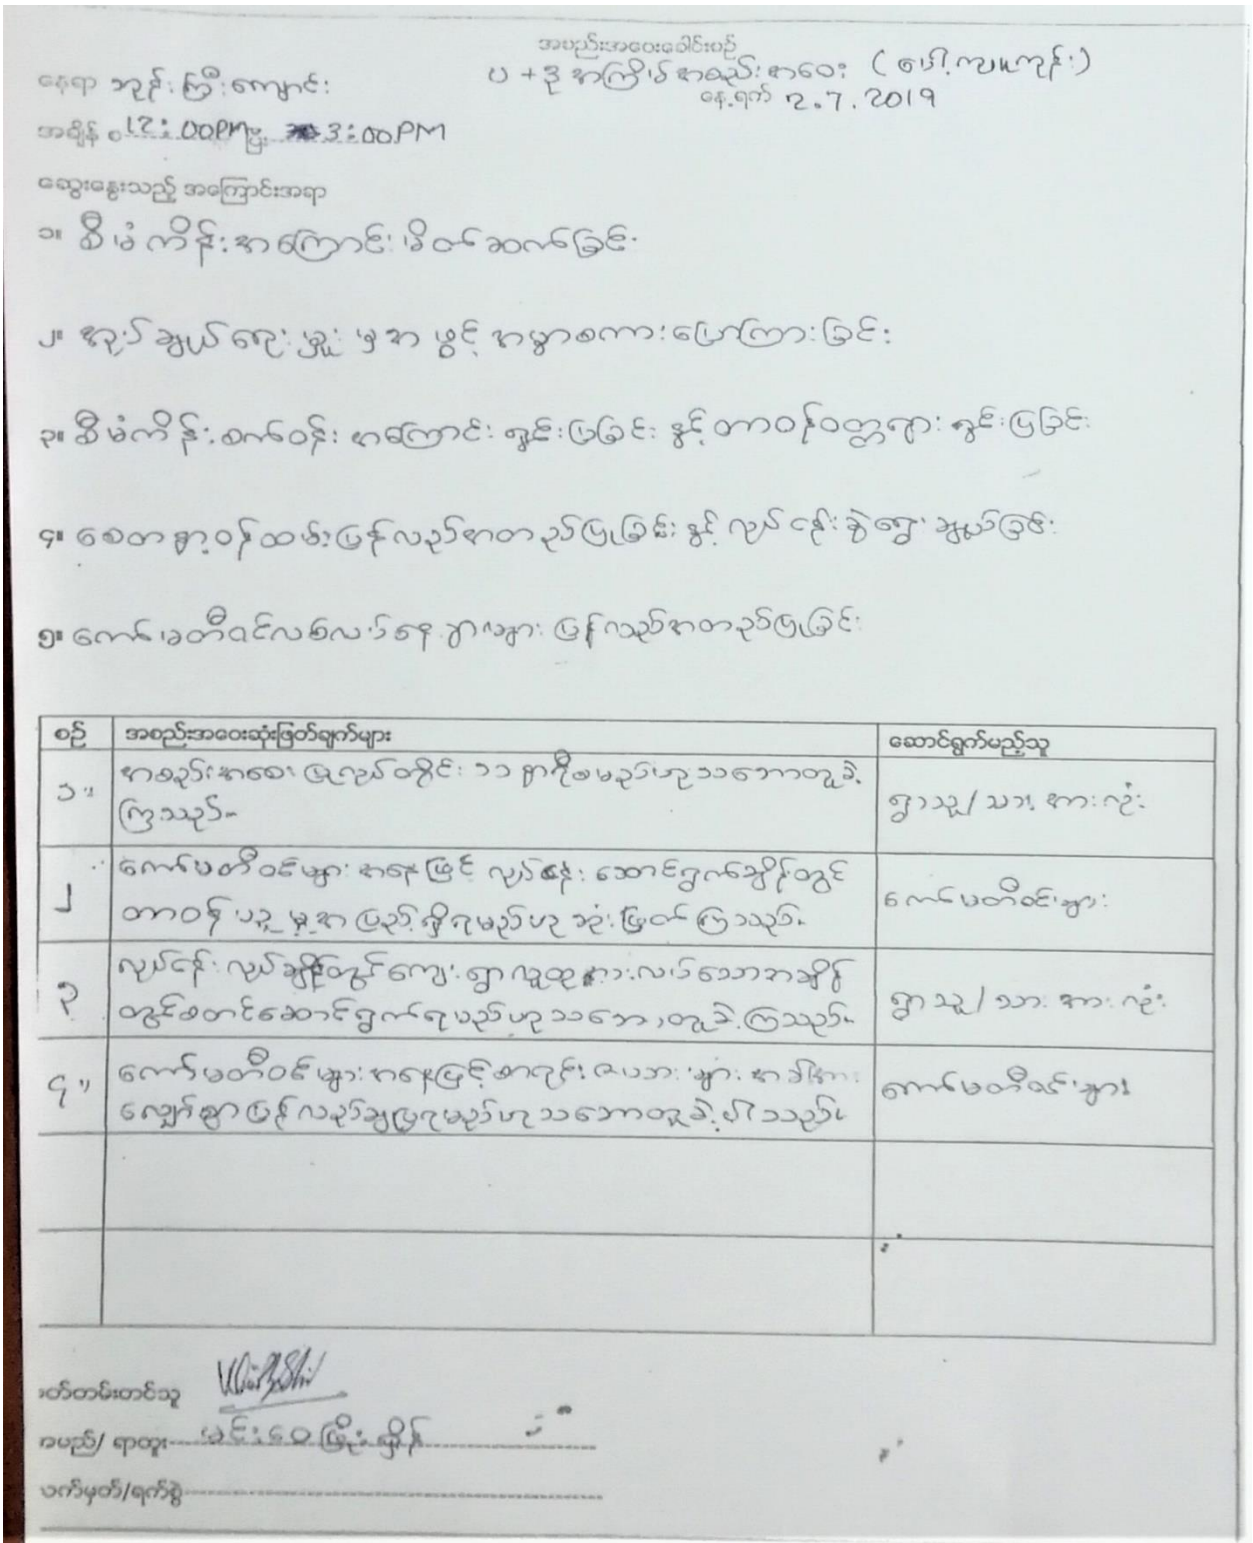 အစည်းအဝေးခေါင်းစဉ်
ပ + ဒု အကြိမ် အစည်းအဝေး (ပေါ့ကူကုန်း)
နေရာ ဘုန်းကြီးကျောင်း
နေ့ရက် 2.7.2019
အချိန် 12:00PM မှ 3:00PM
ဆွေးနွေးသည့် အကြောင်းအရာ
၁။ စီမံကိန်းအကြောင်း မိတ်ဆက်ခြင်း
၂။ အုပ်ချုပ်ရေးမှူးမှ အဖွင့် အမှာစကားပြောကြားခြင်း
၃။ စီမံကိန်းစက်ဝန်း အကြောင်း ရှင်းပြခြင်း နှင့် တာဝန်ဝတ္တရား ရှင်းပြခြင်း
၄။ စေတနာ့ဝန်ထမ်းပြန်လည်အတည်ပြုခြင်း နှင့် လုပ်ငန်းခွဲရွေးချယ်ခြင်း
၅။ ကော်မတီဝင်လစ်လပ်နေရာများ ပြန်လည်အတည်ပြုခြင်း
စဉ် အစည်းအဝေးဆုံးဖြတ်ချက်များ ဆောင်ရွက်မည့်သူ
၁။ အစည်းအဝေး ပြုလုပ်တိုင်း ၁၁ နာရီစမည်ဟုသဘောတူခဲ့
ကြသည်။ ရွာသူ/သား အားလုံး
၂ ကော်မတီဝင်များ အနေဖြင့် လုပ်ငန်း ဆောင်ရွက်ချိန်တွင်
တာဝန်ယူမှုအပြည့်ရှိရမည်ဟု ဆုံးဖြတ်ကြသည်။ ကော်မတီဝင်များ
၃ လုပ်ငန်းလုပ်ချိန်တွင်ကျေးရွာလူထုအားလပ်သောအချိန်
တွင်စတင်ဆောင်ရွက်ရမည်ဟုသဘောတူခဲ့ကြသည်။ ရွာသူ/သား အားလုံး
၄။ ကော်မတီဝင်များအနေဖြင့်စာရင်းဇယားများ အခါအား
လျော်စွာပြန်လည်ချပြရမည်ဟုသဘောတူခဲ့ပါသည်။ ကော်မတီဝင်များ
မှတ်တမ်းတင်သူ
အမည်/ ရာထူး မင်းဝေဖြိုးရှိန်
လက်မှတ်/ရက်စွဲ